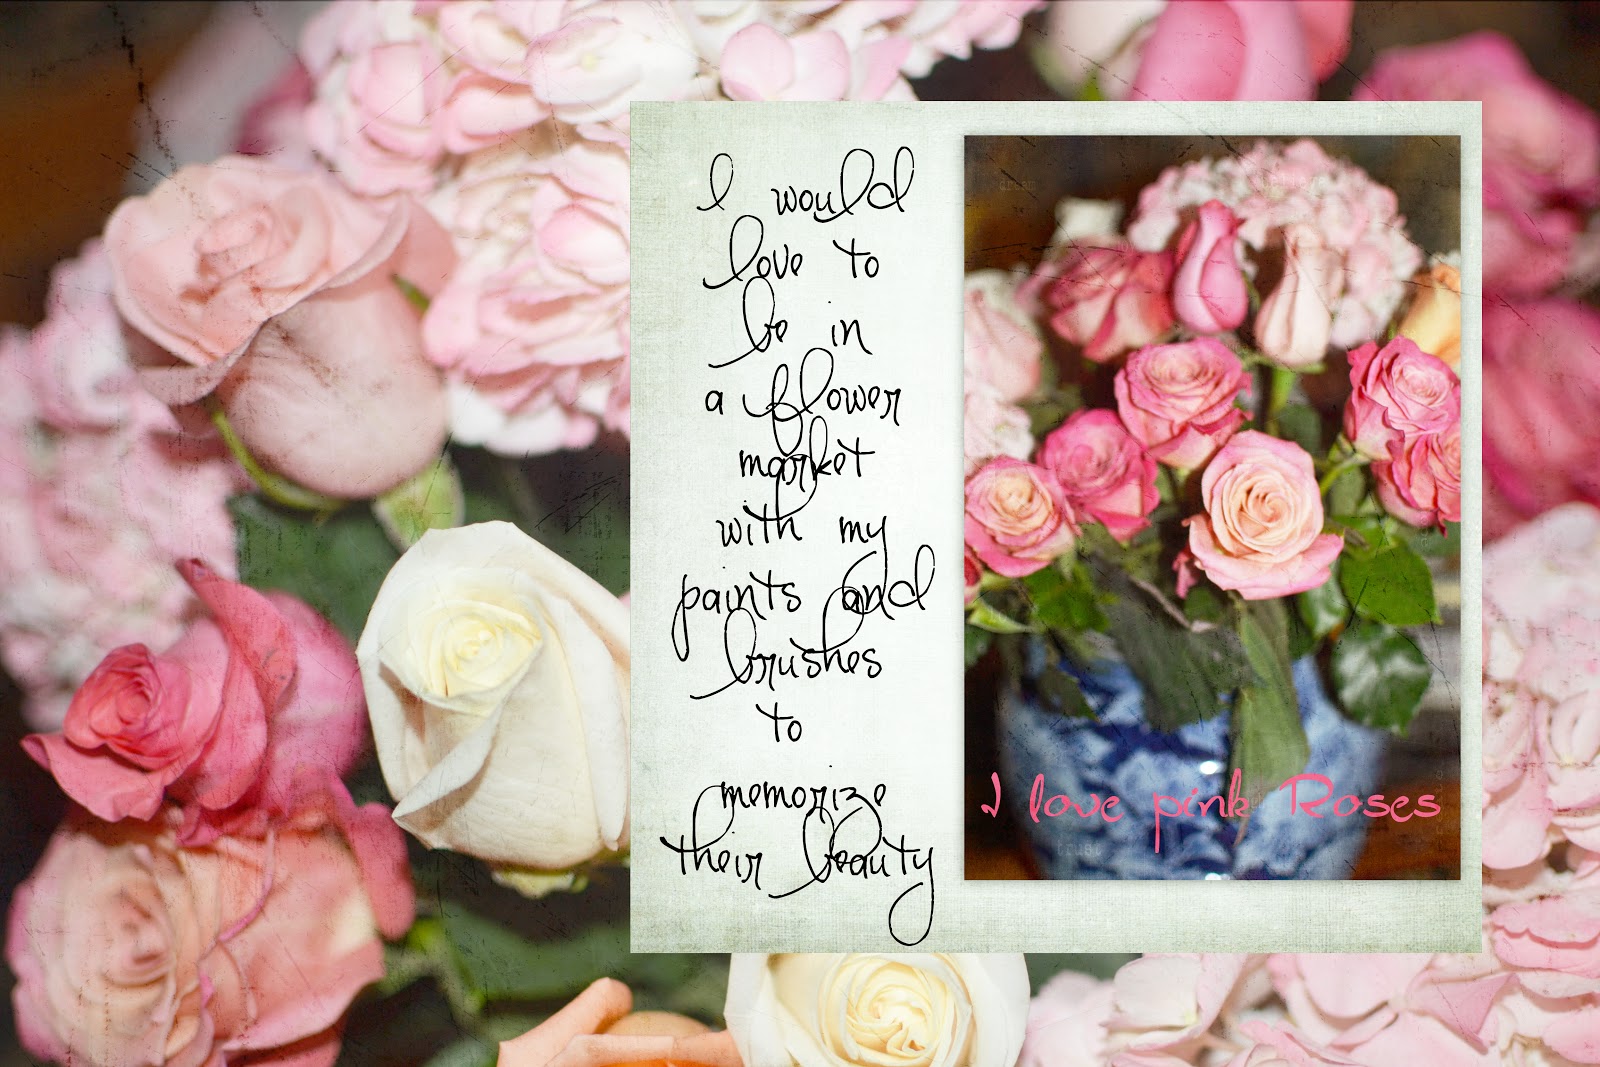 I would
love to
be in
a flower
market
with my
paints and
brushes
to
memorize
their beauty
I love pink Roses
dream
trust